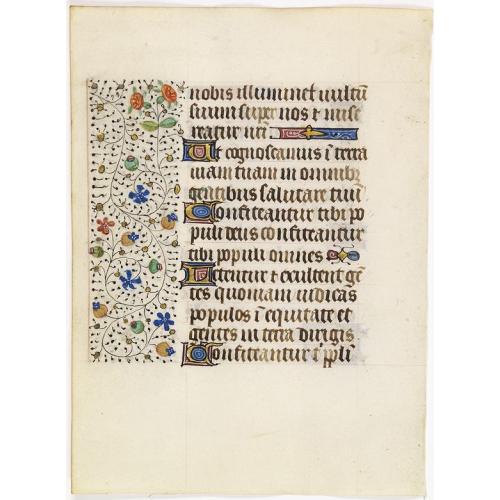 nobis illuminet vultū
suum super nos et mise
reatur nr̄i
Ut cognoscamus ī terra
uiam tuam in omnibꝫ
gentibus salutare tuū
Confiteantur tibi po
puli deus confiteantur
tibi populi omnes
Letentur et exultent gē
tes quoniam iudicas
populos ī equitate et
gentes in terra dirigis
Confiteantur t ppl̄i